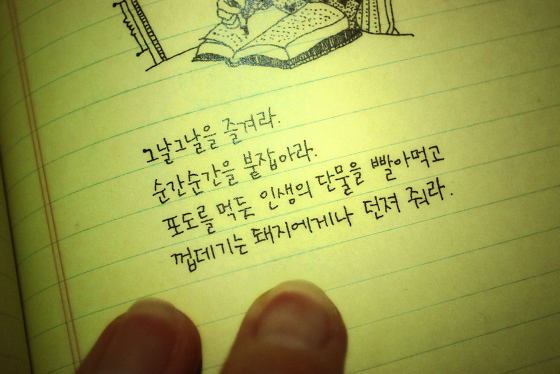 그날그날을 즐겨라.
순간순간을 붙잡아라.
포도를 먹듯 인생의 단물을 빨아먹고
껍데기는 돼지에게나 던져 줘라.